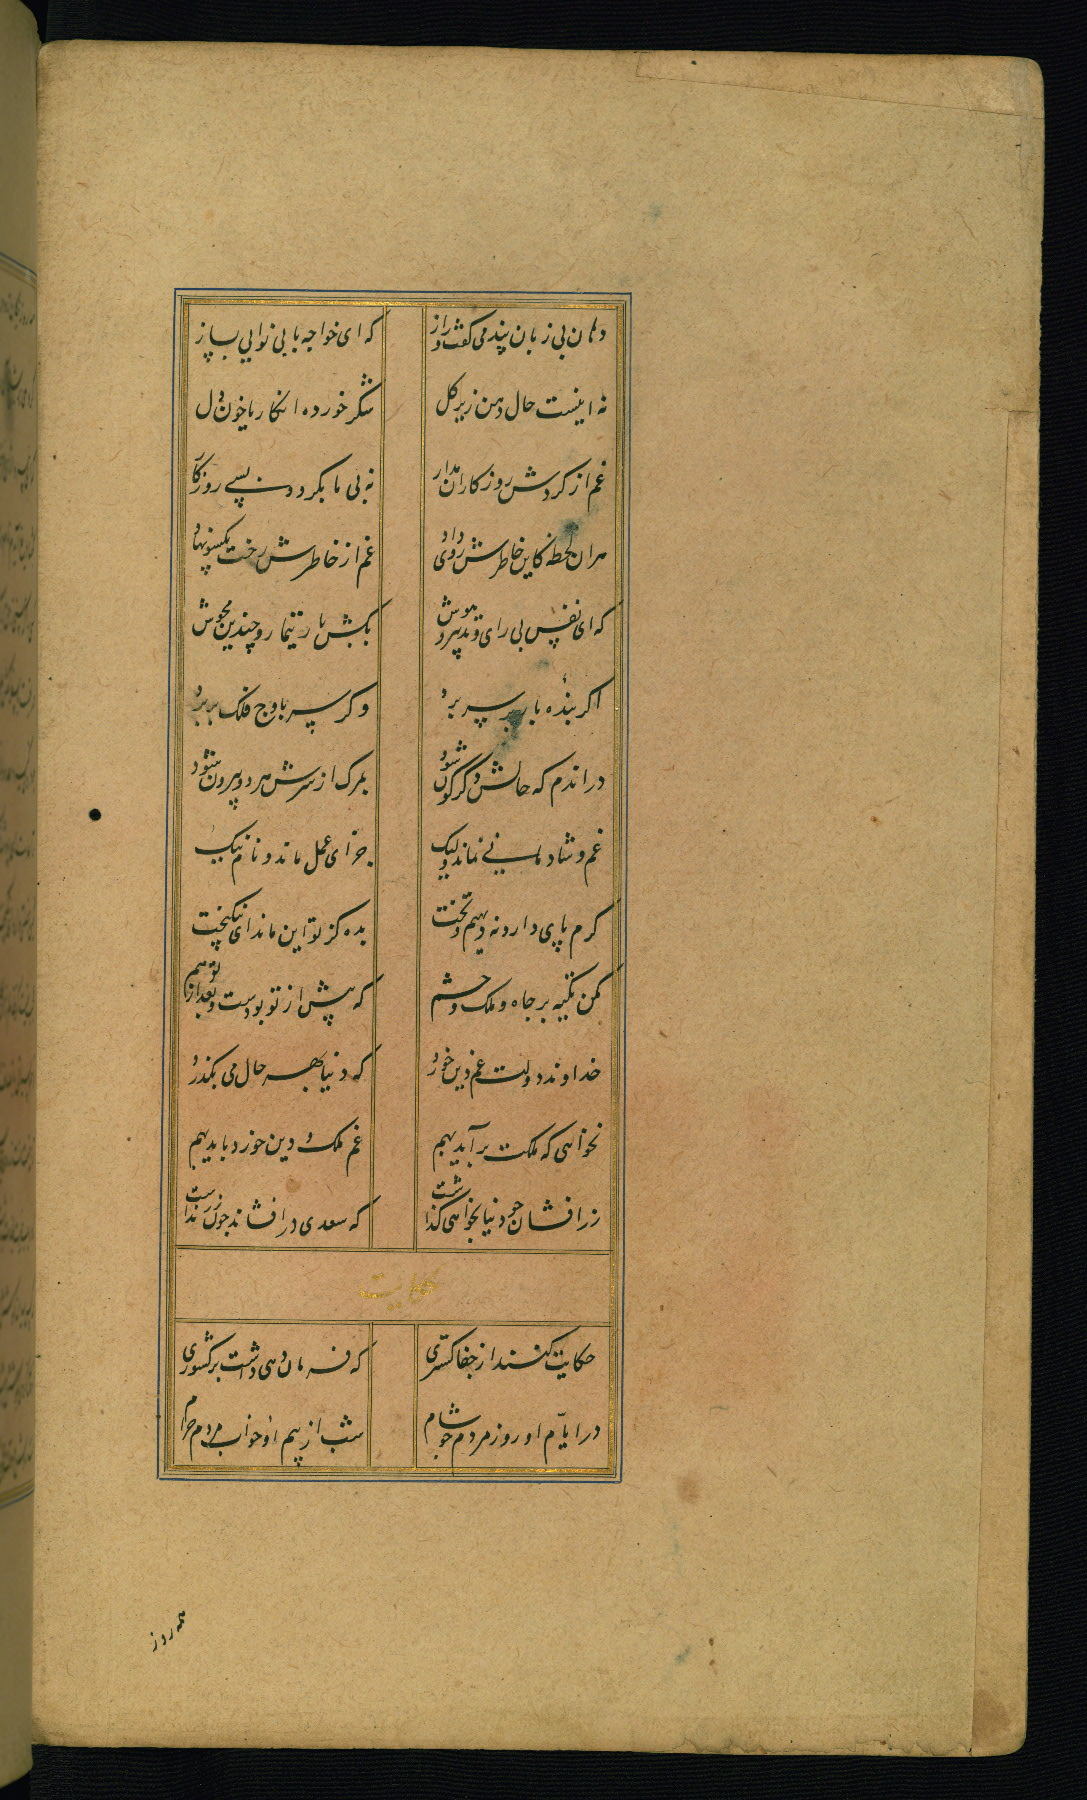 دهان بی زبان پند می گفت و راز که ای خواجه با بی نوایی بساز
نه اینست حال دهن زیر کل شکر خورده انکار یا خون دل
غم از کردش روزکاران مدار که بی ما بکردد بسی روزکار
هران لحظه کاین خاطرش روی داد غم از خاطرش رخت یکسو نهاد
که ای نفس بی رای و تدبیر و هوش بکش بار تیمار و خود را مکش
اکر بنده بار بر سر برد و کر سر باوج فلک بر برد
دراندم که حالش دکرکون شود بمرک از سرش هر دو بیرون شود
غم و شادمانی نماند ولیک جزای عمل ماند و نام نیک
کرم پای دارد نه دیهیم و تخت بده کز تو این ماند ای نیکبخت
مکن تکیه بر جاه و ملک و حشم که پیش از تو بودست و بعد از تو هم
خداوند دولت غم دین خورد که دنیا بهر حال می بکذرد
نخواهی که ملکت برآید بهم غم ملک و دین خورد باید بهم
زرافشان چو دنیا بخواهی کذاشت که سعدی درافشاند چون زر نداشت
حکایت
حکایت کنند از جفاکستری که فرمان دهی داشت بر کشوری
در ایام او روز مردم چو شام شب از بیم او خواب مردم حرام
همه روز